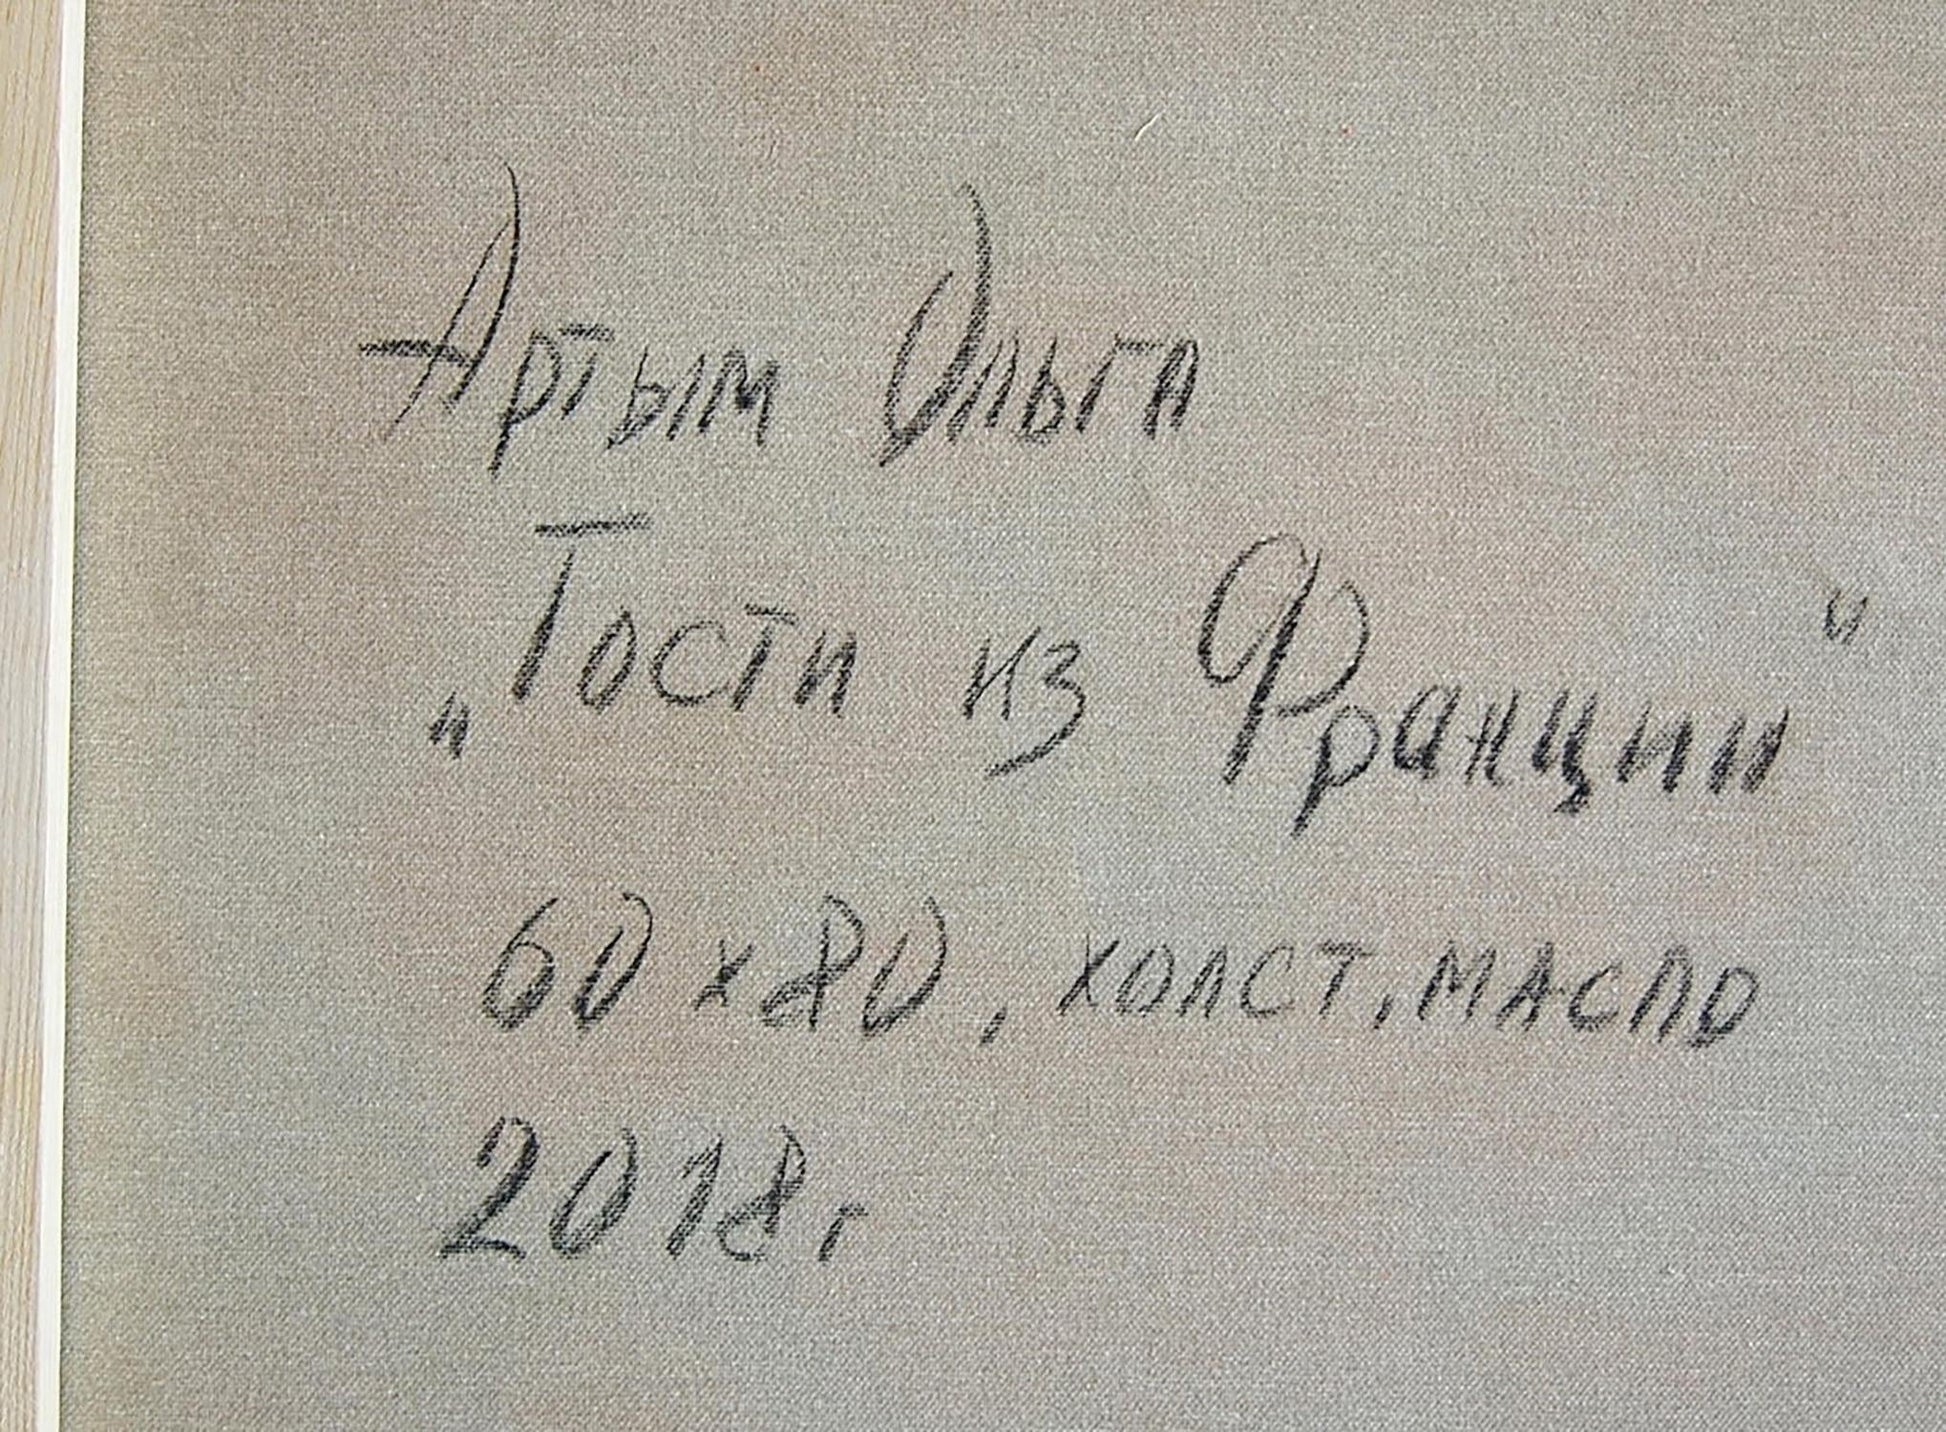 Артым Ольга
„Гости из Франции“
60x80, холст, масло
2018г